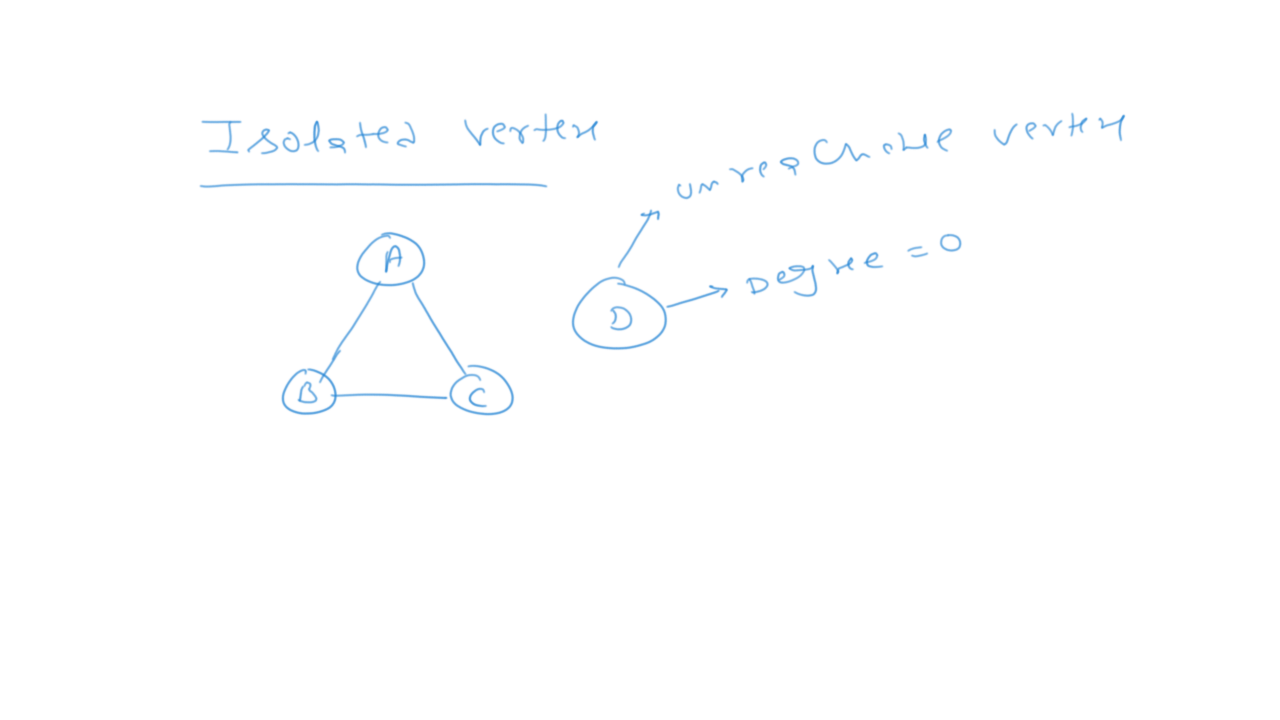 Isolated vertex
unreachable vertex
Degree = 0
A
D
B
C